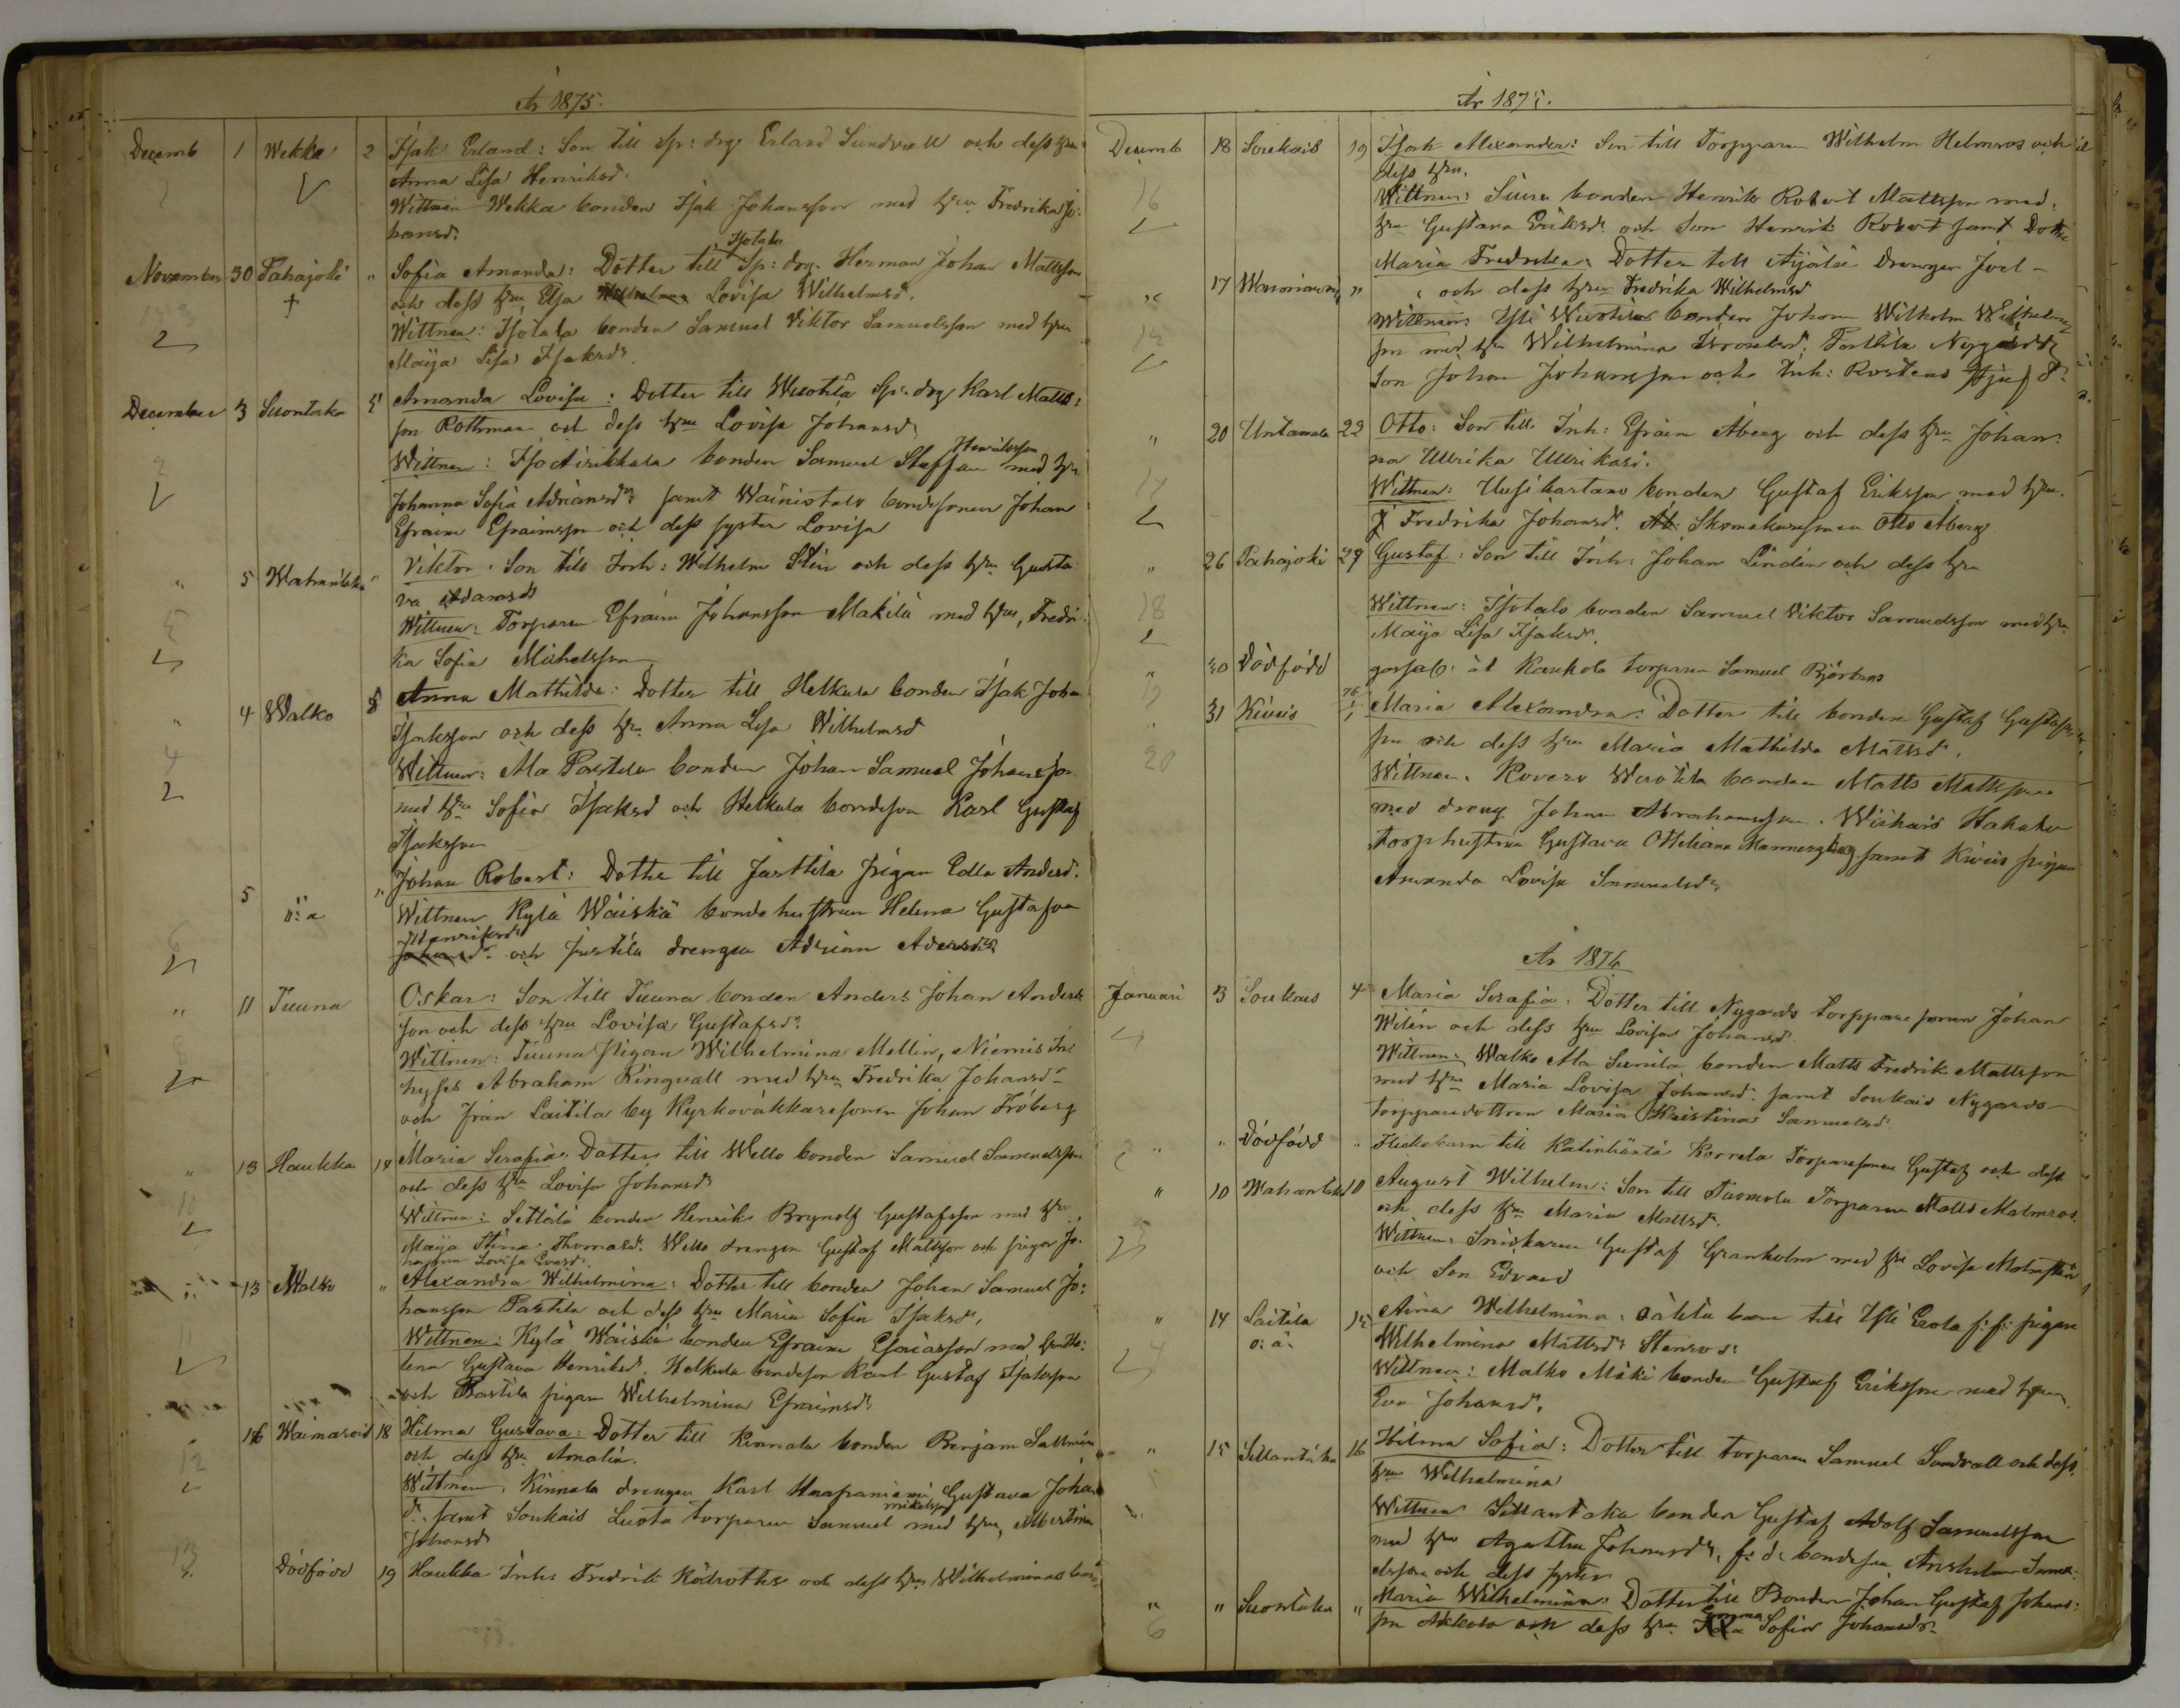 År 1875.
Decemb 1 Wekka 2 Isak Erland: Son till Sp: drg Erland Sundvall och dess hru
Anna Lisa Henriksd.
Wittnen Wekka bonden Isak Johansson med hru Fredrika Jo-
hansd.
November 30 Pahajoki " Sofia Amanda: Dotter till Isotalo Sp: drg. Herman Johan Mattsson
och dess hru Elsa Lovisa Wilhelmsd.
Wittnen: Isotalo bonden Samuel Viktor Samuelsson med hru
Maija Lisa Isaksd.
December 3 Suontaka 5 Amanda Lovisa: Dotter till Sp: drg Karl Matts:
son Rothman och dess hru Lovisa Johansd.
Wittnen: Iso bonden Samuel Staffan Henriksson med hru
Johanna Sofia Adriansd: samt Wäinistalo bondesonen Johan
Efraim Efraimsson och dess syster Lovisa
" 5 Wahantaka " Viktor: Son till Inh: Wilhelm Stén och dess hru Gusta-
va Adamsd
Wittnen: Torparen Efraim Johansson Makilä med hru, Fredri-
ka Sofia Michelsson
" 4 Walko 8 Anna Mathilda: Dotter till Helkula bonden Isak Johan
Isaksson och dess hru Anna Lisa Wilhelmsd
Wittnen: Ala Pastila bonden Johan Samuel Johansson
med hru Sofia Isaksd och Helkula bondeson Karl Gustaf
Isaksson
5 o: ä " Johan Robert: Dotter till Justtila pigan Edla Andersd.
Wittnen Kylä Wäiskä bonde hustrun Helena Gustafva
Henriksd och Justila drengen Adrian Andersd
" 11 Tuuna Oskar: Son till Tuuna bonden Anders Johan Anders
son och dess hru Lovisa Gustafsd.
Wittnen: Tuuna pigan Wilhelmina Mellin, Niemis In-
hyses Abraham Ringvall med hru Fredrika Johansd
och från Laitila by Kyrkoväktaresonen Johan Fröberg
" 13 Haukka 14 Maria Serafia: Dotter till Wello bonden Samuel Samuelsson
och dess hru Lovisa Johansd
Wittnen: bonden Henrik Brynolf Gustafsson med hru
Maija Stina Thomasd. Wello drengen Gustaf Mattsson och pigan Jo-
hanna Lovisa
13 Walko " Alexandra Wilhelmina: Dotter till bonden Johan Samuel Jo:
hansson Pastila och dess hru Maria Sofia Isaksd,
Wittnen: Kylä Wäiskä bonden Efraim med hru He:
lena Gustava Henriksd. Helkula bondeson Karl Gustaf Isaksson
och Pastila pigan Wilhelmina Efraimsd.
16 Waimaro 18 Hilma Gustava: Dotter till Kinnala bonden Benjam
och dess hru Amalia.
Wittnen: Kinnala drengen Karl Haapaniemi, Gustava Johan
d. samt Soukais Luota torparen Samuel Mikelsson med hru, Albertina
Johansd
Dödfödd 19 Haukka Inh: Fredrik Rödroths och dess hru Wilhelminas
År 1875.
Decemb 18 Soukais 19 Isak Alexander: Son till Torparen Wilhelm Helmros och
dess hru.
Wittnen: bonden Henrik Robert Mattsson med
hru Gustava Eriksd. och Son Henrik Robert samt Dotter
" 17 " Maria Fredrika: Dotter till drengen Joel
och dess hru Fredrika Wilhelmsd
Wittnen: Yli bonden Johan Wilhelm Wilhelms
son med hru Wilhelmina
Son Johan Johansson och Inh:
" 20 Untamala 22 Otto: Son till Inh: Efraim Åberg och dess hru Johan-
na Ullrika Ullriksd.
Wittnen: Uusikartano bonden Gustaf Eriksson med hru
Fredrika Johansd. Skomakaresonen Otto Åberg
" 26 Pahajoki 27 Gustaf: Son till Inh: Johan Lindén och dess hru
Wittnen: Isotalo bonden Samuel Viktor Samuelsson med hru
Maija Lisa Isaksd.
" 30 Dödfödd gossab: åt Kaukola torparen Samuel Björkros
31 Kiveis 76 1/1 Maria Alexandra: Dotter till bonden Gustaf Gustafs
son och dess hru Maria Mathilda Mattsd.
Wittnen: Rovero bonden Matts Mattsson
med dreng Johan Abrahamsson. Hakala
torphustrun Gustava Ottiliana samt Kiveis pigan
Amanda Lovisa Samuelsd
År 1876
Januari 3 Soukais 4 Maria Serafia: Dotter till Nygårds torpparesonen Johan
Wilén och dess hru Lovisa Johansd
Wittnen: Walko Ala Sunila bonden Matts Fredrik Mattsson
med hru Maria Lovisa Johansd: samt Soukais Nygårds
torpparedottren Maria Kristina Samuelsd
" " Dödfödd " Flickebarn till Katinhäntä Korrela Torparesonen Gustaf och dess
" 10 Wahantaka 10 August Wilhelm: Son till Tuomola Torparen Matts Malmros
och dess hru Maria Mattsd.
Wittnen: Snickaren Gustaf Granholm med hru Lovisa Malmstén
och Son Edvard
" 14 Laitila o: ä: 15 Aina Wilhelmina: oäkta barn till Yli Eeola f: f: pigan
Wilhelmina Mattsd: Stenros:
Wittnen: Malko Mäki bonden Gustaf Eriksson med hru
Eva Johansd.
" 15 Sillantaka 16 Hilma Sofia: Dotter till torparen Samuel Sundvall och dess
hru Wilhelmina
Wittnen Sillantaka bonden Gustaf Adolf Samuelsson
med hru Agatha Johansd, f: d: bondeson Anshelm Samu-
elsson och dess syster
" " Suontaka " Maria Wilhelmina: Dotter till Bonden Johan Gustaf Johans:
son och dess hru Emma Sofia Johansd